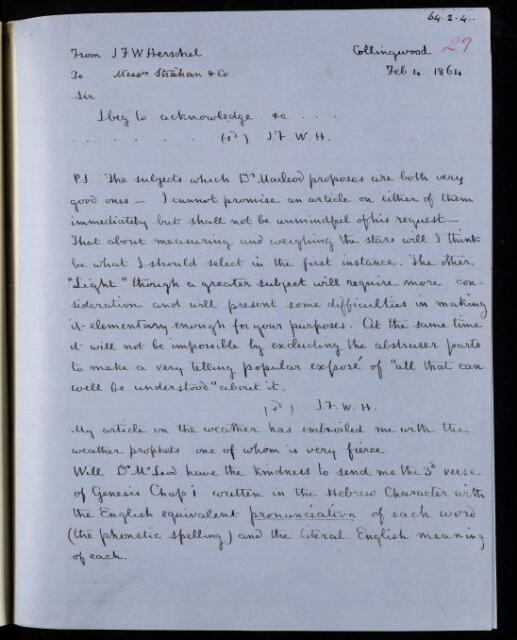 64.2.4.
29
From J F W Herschel Collingwood
To Messrs Strahan & Co. Feb 4 1864
Sir
I beg to acknowledge &c . . .
. . . . . . . (sd) J. F. W. H.
P.S. The subjects which Dr Macleod proposes are both very
good ones — I cannot promise an article on either of them
immediately but shall not be unmindful of his request —
That about measuring and weighing the stars will I think
be what I should select in the first instance. The other
"Light" though a greater subject will require more con-
sideration and will present some difficulties in making
it elementary enough for your purposes. At the same time
it will not be impossible by excluding the abstruser parts
to make a very telling popular exposé of "all that can
well be understood" about it.
(sd) J. F. W. H.
My article on the weather has embroiled me with the
weather prophets one of whom is very fierce
Will Dr McLeod have the kindness to send me the 3d verse
of Genesis Chap i written in the Hebrew Character with
the English equivalent pronunciation of each word
(the phonetic spelling) and the literal English meaning
of each.